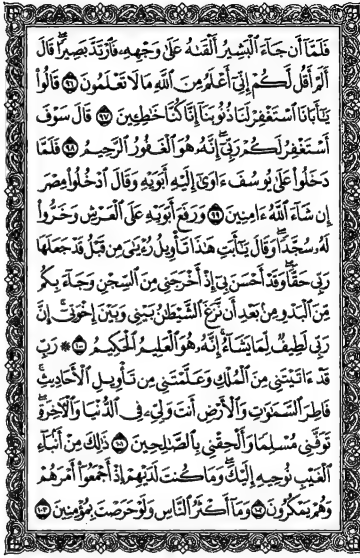 فَلَمَّا أَن جَاءَ الْبَشِيرُ أَلْقَاهُ عَلَىٰ وَجْهِهِ فَارْتَدَّ بَصِيرًا ۖ قَالَ
أَلَمْ أَقُل لَّكُمْ إِنِّي أَعْلَمُ مِنَ اللَّهِ مَا لَا تَعْلَمُونَ ٩٦ قَالُوا
يَا أَبَانَا اسْتَغْفِرْ لَنَا ذُنُوبَنَا إِنَّا كُنَّا خَاطِئِينَ ٩٧ قَالَ سَوْفَ
أَسْتَغْفِرُ لَكُمْ رَبِّي ۖ إِنَّهُ هُوَ الْغَفُورُ الرَّحِيمُ ٩٨ فَلَمَّا
دَخَلُوا عَلَىٰ يُوسُفَ آوَىٰ إِلَيْهِ أَبَوَيْهِ وَقَالَ ادْخُلُوا مِصْرَ
إِن شَاءَ اللَّهُ آمِنِينَ ٩٩ وَرَفَعَ أَبَوَيْهِ عَلَى الْعَرْشِ وَخَرُّوا
لَهُ سُجَّدًا ۖ وَقَالَ يَا أَبَتِ هَٰذَا تَأْوِيلُ رُؤْيَايَ مِن قَبْلُ قَدْ جَعَلَهَا
رَبِّي حَقًّا ۖ وَقَدْ أَحْسَنَ بِي إِذْ أَخْرَجَنِي مِنَ السِّجْنِ وَجَاءَ بِكُم
مِّنَ الْبَدْوِ مِن بَعْدِ أَن نَّزَغَ الشَّيْطَانُ بَيْنِي وَبَيْنَ إِخْوَتِي ۚ إِنَّ
رَبِّي لَطِيفٌ لِّمَا يَشَاءُ ۚ إِنَّهُ هُوَ الْعَلِيمُ الْحَكِيمُ ١٠٠ ۞ رَبِّ
قَدْ آتَيْتَنِي مِنَ الْمُلْكِ وَعَلَّمْتَنِي مِن تَأْوِيلِ الْأَحَادِيثِ ۚ
فَاطِرَ السَّمَاوَاتِ وَالْأَرْضِ أَنتَ وَلِيِّي فِي الدُّنْيَا وَالْآخِرَةِ ۖ
تَوَفَّنِي مُسْلِمًا وَأَلْحِقْنِي بِالصَّالِحِينَ ١٠١ ذَٰلِكَ مِنْ أَنبَاءِ
الْغَيْبِ نُوحِيهِ إِلَيْكَ ۖ وَمَا كُنتَ لَدَيْهِمْ إِذْ أَجْمَعُوا أَمْرَهُمْ
وَهُمْ يَمْكُرُونَ ١٠٢ وَمَا أَكْثَرُ النَّاسِ وَلَوْ حَرَصْتَ بِمُؤْمِنِينَ ١٠٣